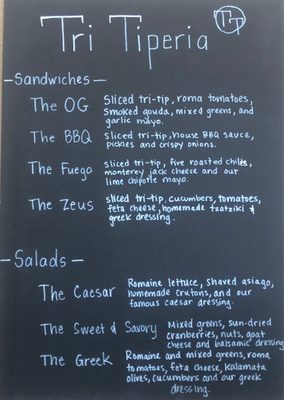 Tri Tiperia
TT
— Sandwiches —
The OG Sliced tri-tip, roma tomatoes,
smoked gouda, mixed greens, and
garlic mayo.
The BBQ sliced tri-tip, house BBQ sauce,
pickles and crispy onions.
The Fuego sliced tri-tip, fire roasted chiles,
monterey jack cheese and our
lime chipotle mayo.
The Zeus sliced tri-tip, cucumbers, tomatoes,
feta cheese, homemade tzatziki &
greek dressing.
— Salads —
The Caesar Romaine lettuce, shaved asiago,
homemade crutons, and our
famous caesar dressing.
The Sweet & Savory Mixed greens, sun-dried
cranberries, nuts, goat
cheese and balsamic dressing
The Greek Romaine and mixed greens, roma
tomatoes, feta cheese, kalamata
olives, cucumbers and our greek
dressing.